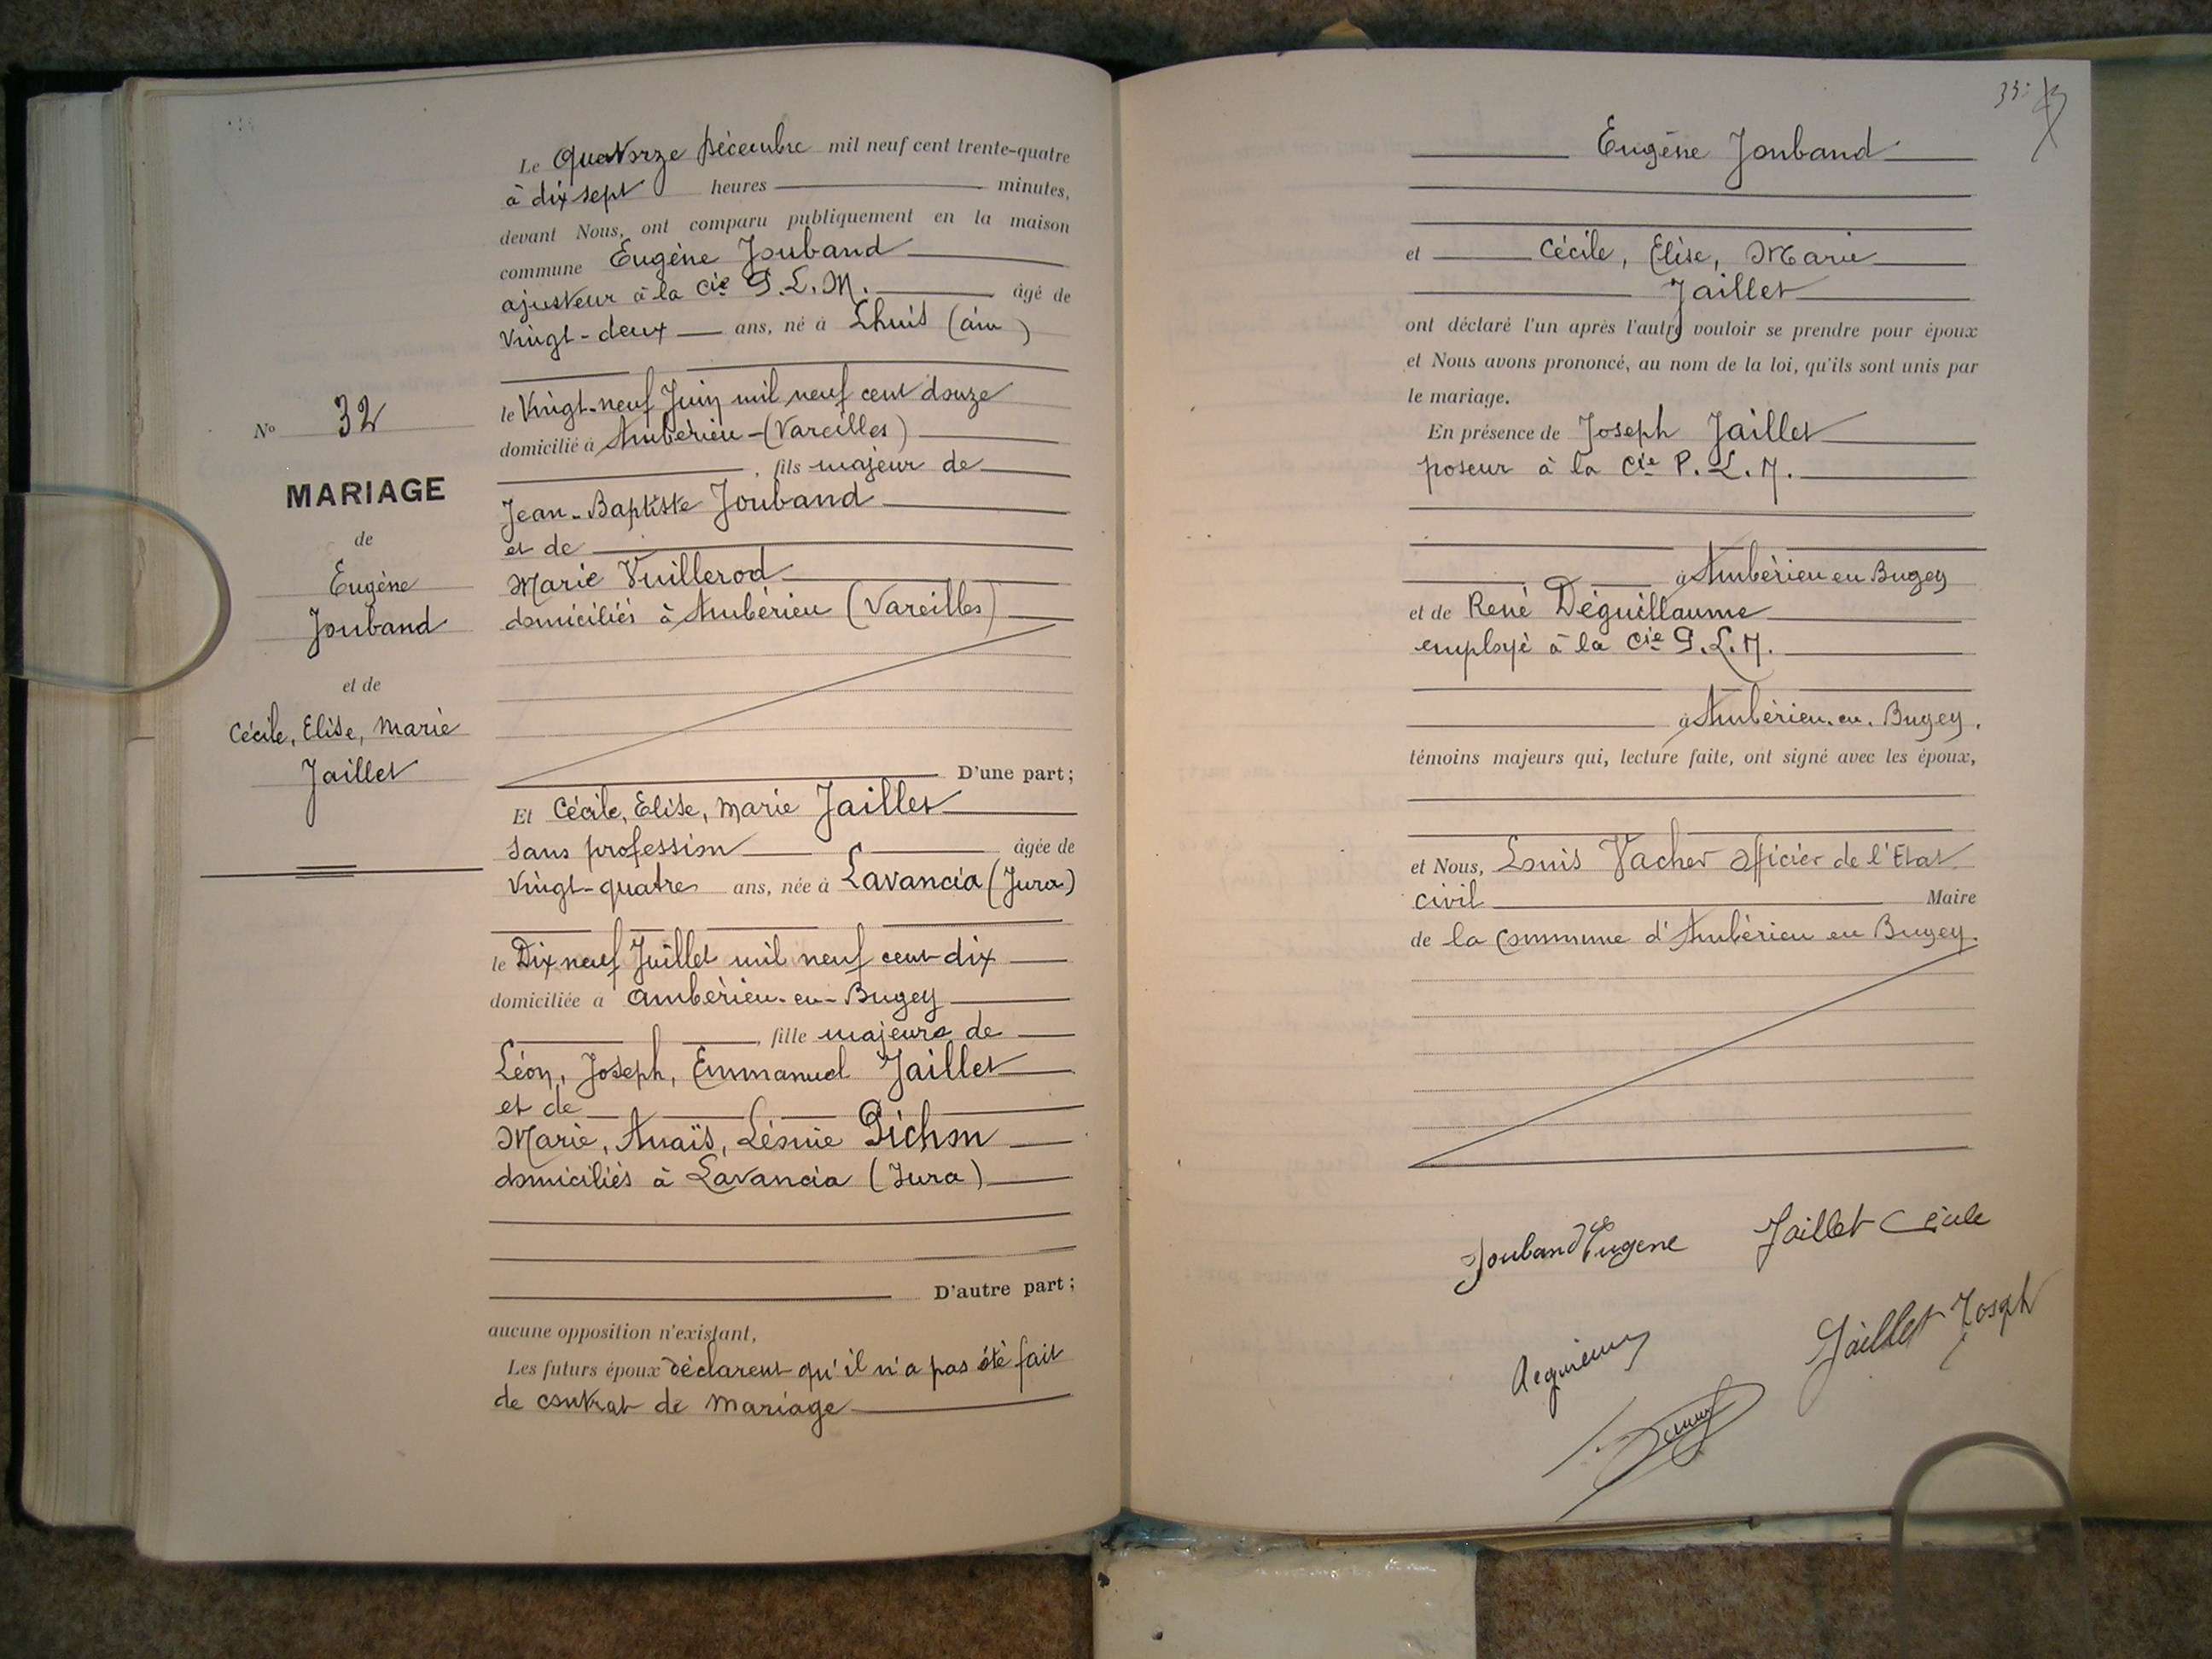 N° 32
MARIAGE
de
Eugène
Jouband
et de
Cécile, Elise, Marie
Jaillet
Le Quatorze Décembre mil neuf cent trente-quatre
à dix sept heures minutes,
devant Nous, ont comparu publiquement en la maison
commune Eugène Jouband
ajusteur à la Cie P.L.M. âgé de
vingt-deux ans, né à Lhuis (ain)
le Vingt-neuf Juin mil neuf cent douze
domicilié à Ambérieu-(Vareilles)
, fils majeur de
Jean-Baptiste Jouband
et de
Marie Vuillerod
domiciliés à Ambérieu (Vareilles)
D'une part;
Et Cécile, Elise, Marie Jaillet
Sans profession âgée de
vingt-quatre ans, née à Lavancia (Jura)
le Dix neuf Juillet mil neuf cent dix
domiciliée à ambérieu-en-Bugey
, fille majeure de
Léon, Joseph, Emmanuel Jaillet
et de
Marie, Anaïs, Léonie Pichon
domiciliés à Lavancia (Jura)
D'autre part;
aucune opposition n'existant,
Les futurs époux déclarent qu'il n'a pas été fait
de contrat de mariage
33
Eugène Jouband
et Cécile, Elise, Marie
Jaillet
ont déclaré l'un après l'autre vouloir se prendre pour époux
et Nous avons prononcé, au nom de la loi, qu'ils sont unis par
le mariage.
En présence de Joseph Jaillet
poseur à la Cie P.L.M.
à Ambérieu en Bugey
et de René Déguillaume
employé à la Cie P.L.M.
à Ambérieu-en-Bugey.
témoins majeurs qui, lecture faite, ont signé avec les époux,
et Nous, Louis Vacher officier de l'Etat
civil Maire
de la Commune d'Ambérieu en Bugey.
Jouband Eugene Jaillet Cécile
Jaillet Joseph